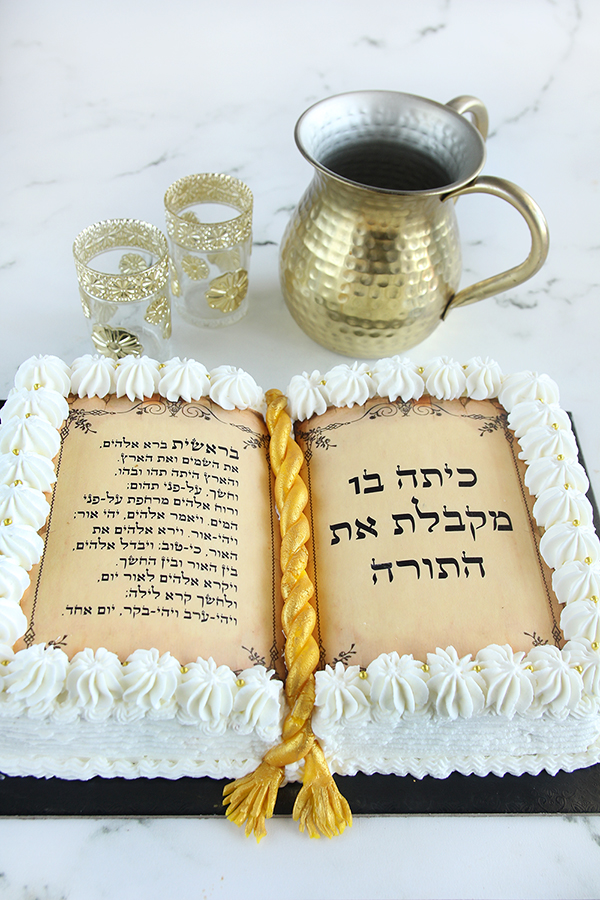 כיתה בו
מקבלת את
התורה
בראשית ברא אלהים,
את השמים ואת הארץ.
והארץ היתה תהו ובהו,
וחשך, על-פני תהום;
ורוח אלהים מרחפת על-פני
המים. ויאמר אלהים, יהי אור;
ויהי-אור. וירא אלהים את
האור, כי-טוב; ויבדל אלהים,
בין האור ובין החשך.
ויקרא אלהים לאור יום,
ולחשך קרא לילה;
ויהי-ערב ויהי-בקר, יום אחד.